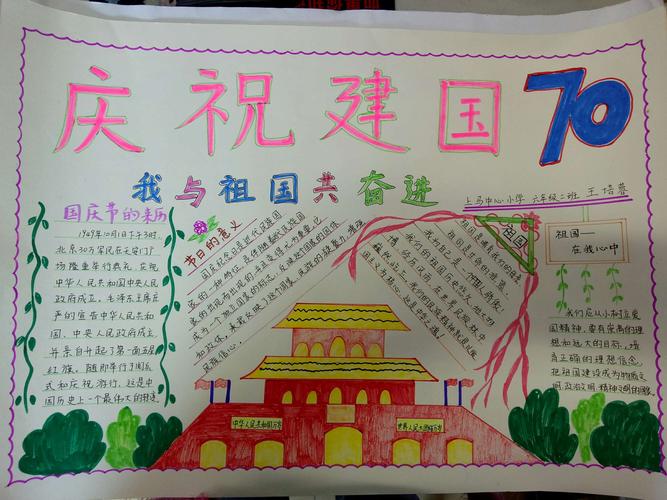 庆祝建国70
我与祖国共奋进
上马中心小学 六年级二班 王培蓉
国庆节的来历
1949年10月1日下午3时,
北京30万军民在天安门广
场隆重举行典礼,庆祝
中华人民共和国中央人民
政府成立。毛泽东主席庄
严的宣告中华人民共和
国、中央人民政府成立
并亲自升起了第一面五星
红旗。随即举行了阅兵
式和庆祝游行。这是中
国历史上一个最伟大的转变
节日的意义
国庆纪念日是近代民族国
家的一种特征,是伴随着近代民族国
家的出现而出现的,并且变得尤为重要。它
成为一个独立国家的标志,反映这个国家的国体
和政体。
民族信心,
祖国
祖国——
在我心中
我们应从小树立爱
国精神,要有崇高的理
想和远大的目标,培
育正确的理想信念,
把祖国建设成为物质文
明、政治文明、精神文明的国家
中华人民共和国万岁
世界人民大团结万岁